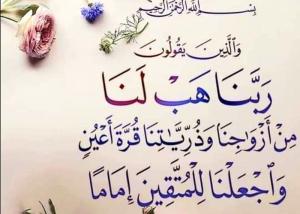 بِسْمِ اللَّهِ الرَّحْمَٰنِ الرَّحِيمِ
وَالَّذِينَ يَقُولُونَ
رَبَّنَا هَبْ لَنَا
مِنْ أَزْوَاجِنَا وَذُرِّيَّاتِنَا قُرَّةَ أَعْيُنٍ
وَاجْعَلْنَا لِلْمُتَّقِينَ إِمَامًا